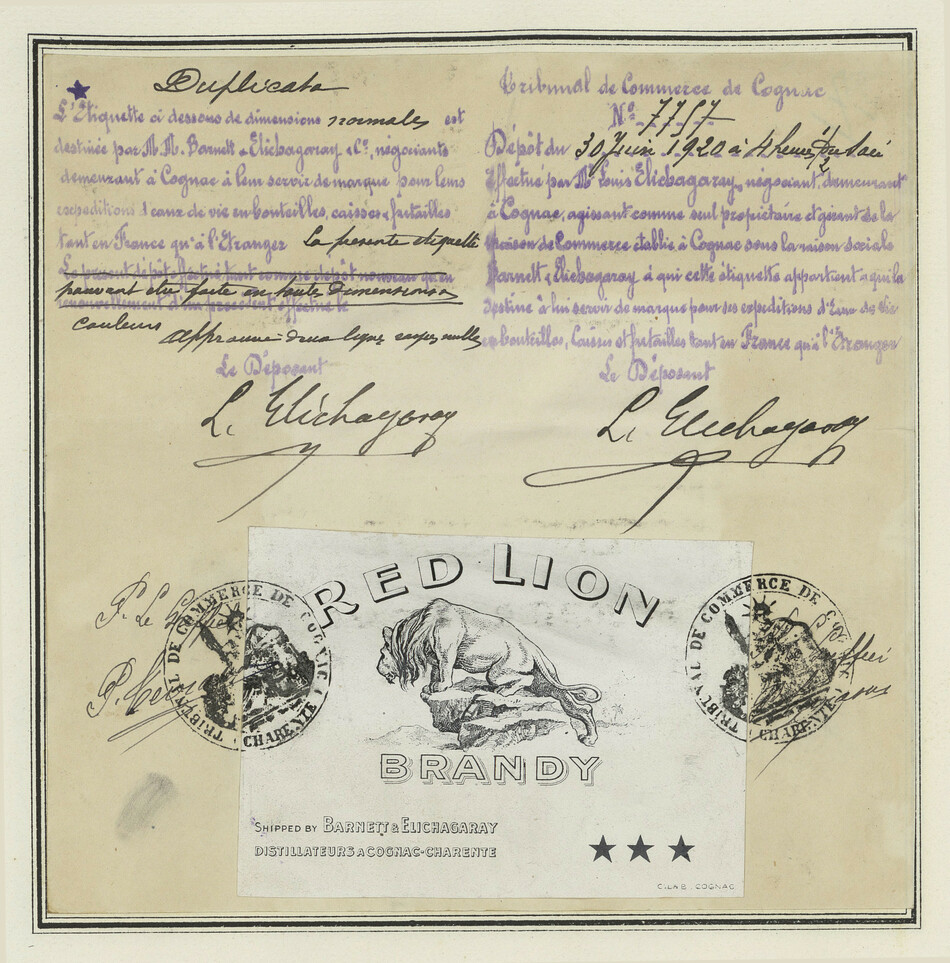 Duplicata
L'Etiquette ci dessous de dimensions normales est
destinée par M.M. Barnett & Elichagaray & Cº, négociants
demeurant à Cognac à leur servir de marque pour leurs
expeditions d'eaux de vie en bouteilles, caisses & futailles
tant en France qu'à l'Etranger La présente étiquette
Le présent dépôt
pouvant être faite en toutes dimensions &
renouvellement d'un précédent effectué le
couleurs
approuvé deux lignes rayées nulles
Le Déposant
L. Elichagaray
Tribunal de Commerce de Cognac
Nº 7757
Dépôt du 30 Juin 1920 à 4 heures du Soir
Effectué par M. Louis Elichagaray, négociant, demeurant
à Cognac, agissant comme seul propriétaire et gérant de la
Maison de Commerce établie à Cognac sous la raison sociale
Barnett & Elichagaray à qui cette étiquette appartient & qui la
destine à lui servir de marque pour ses expeditions d'Eaux de Vie
en bouteilles, Caisses et futailles tant en France qu'à l'Etranger
Le Déposant
L. Elichagaray
P. Le
TRIBUNAL DE COMMERCE DE COGNAC
CHARENTE
RED LION
BRANDY
SHIPPED BY BARNETT & ELICHAGARAY
DISTILLATEURS A COGNAC-CHARENTE
★★★
C.LNB. COGNAC
TRIBUNAL DE COMMERCE DE COGNAC
CHARENTE